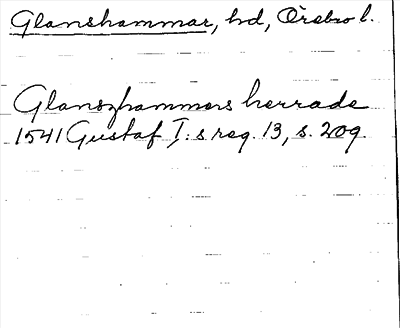 Glanshammar, hd, Örebro l.
Glanszhammers herrade
1541 Gustaf I:s reg. 13, s. 209.